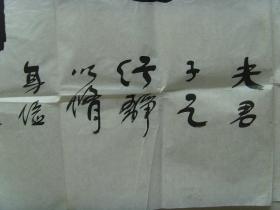 夫君
子之
行静
以脩
身俭